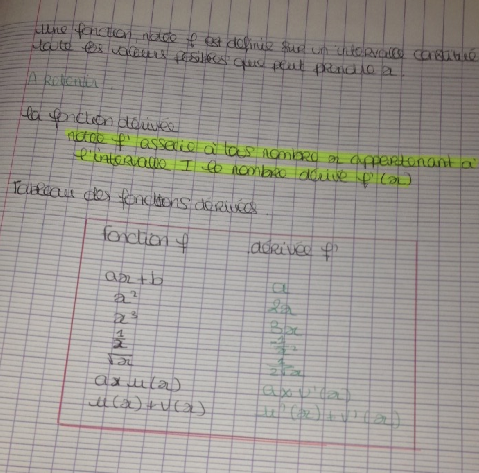 une fonction, notée f est définie sur un intervalle constitué
toute les valeurs possibles que peut prendre x
A Retenir
la fonction dérivée
notée f' associe à tous nombre x appartenant à
l'intervalle I le nombre dérivé f'(x)
Tableau des fonctions dérivées.
fonction f dérivée f'
ax+b a
x² 2x
x³ 3x
1/x -1/x²
√x 1/2√x
a×u(x) a×v'(x)
u(x)+v(x) u'(x)+v'(x)